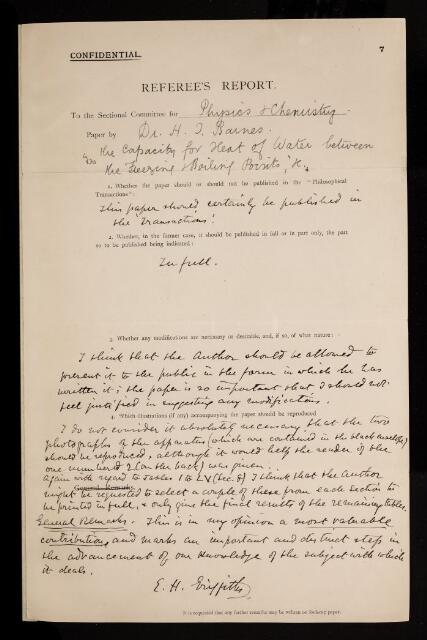 CONFIDENTIAL.
7
REFEREE'S REPORT.
To the Sectional Committee for Physics & Chemistry.
Paper by Dr. H. T. Barnes.
On "the Capacity for Heat of Water between
the Freezing & Boiling Points, &c.
1. Whether the paper should or should not be published in the "Philosophical
Transactions":
This paper should certainly be published in
the 'Transactions'.
2. Whether, in the former case, it should be published in full or in part only, the part
so to be published being indicated:
In full.
3. Whether any modifications are necessary or desirable, and, if so, of what nature:
I think that the Author should be allowed to
present it to the public in the form in which he has
written it; the paper is so important that I should not
feel justified in suggesting any modifications.
4. Which illustrations (if any) accompanying the paper should be reproduced
I do not consider it absolutely necessary that the two
photographs of the apparatus (which are contained in the black envelope)
should be reproduced, although it would help the reader if the
one numbered 2 (on the back) was given.
General Remarks
Again with regard to Tables I to LV (Sec. 8) I think that the Author
might be requested to select a couple of these from each section to
be printed in full, & only give the final results of the remaining tables.
General Remarks. This is in my opinion a most valuable
contribution, and marks an important and distinct step in
the advancement of our knowledge of the subject with which
it deals.
E. H. Griffiths
It is requested that any further remarks may be written on foolscap paper.